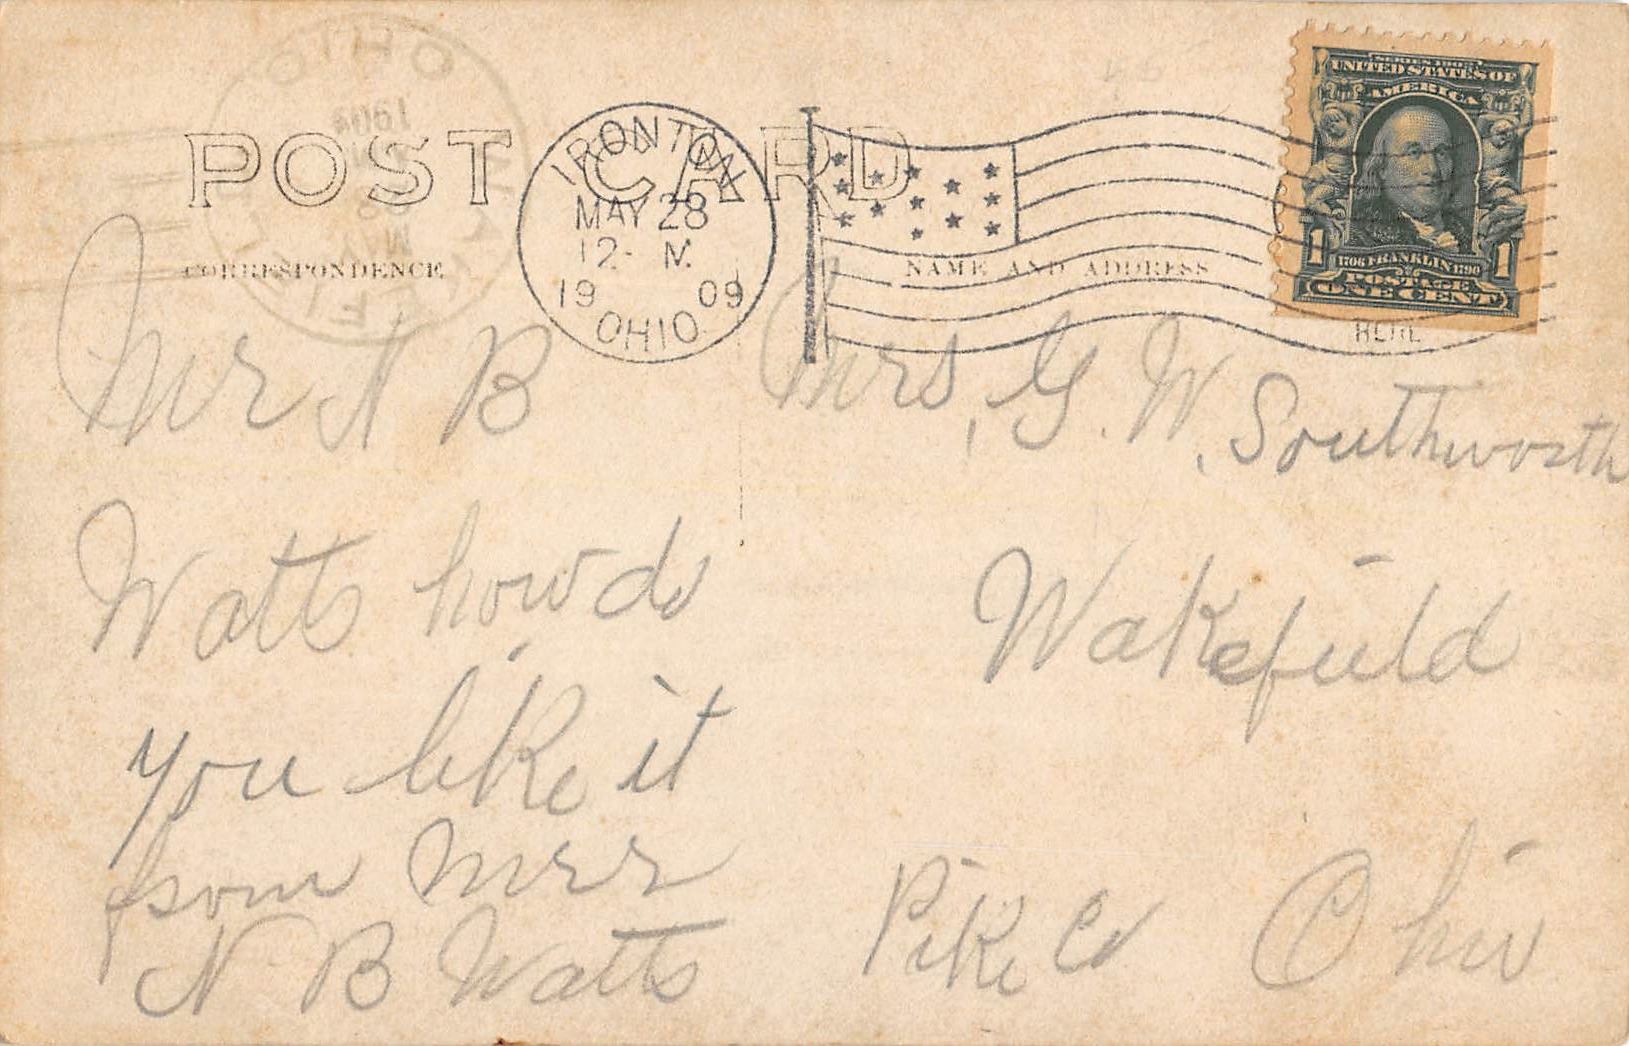 POST CARD
IRONTON
MAY 28
12- M.
19 09
OHIO
SERIES 1902
UNITED STATES OF
AMERICA
1 1
1706 FRANKLIN 1790
POSTAGE
ONE CENT
HERE
CORRESPONDENCE
NAME AND ADDRESS
Mr N B
Watts how do
you like it
from Mrs
N B Watts
Mrs, G. W. Southworth
Wakefield
Pike Co Ohio
OHIO
WAKEFIELD